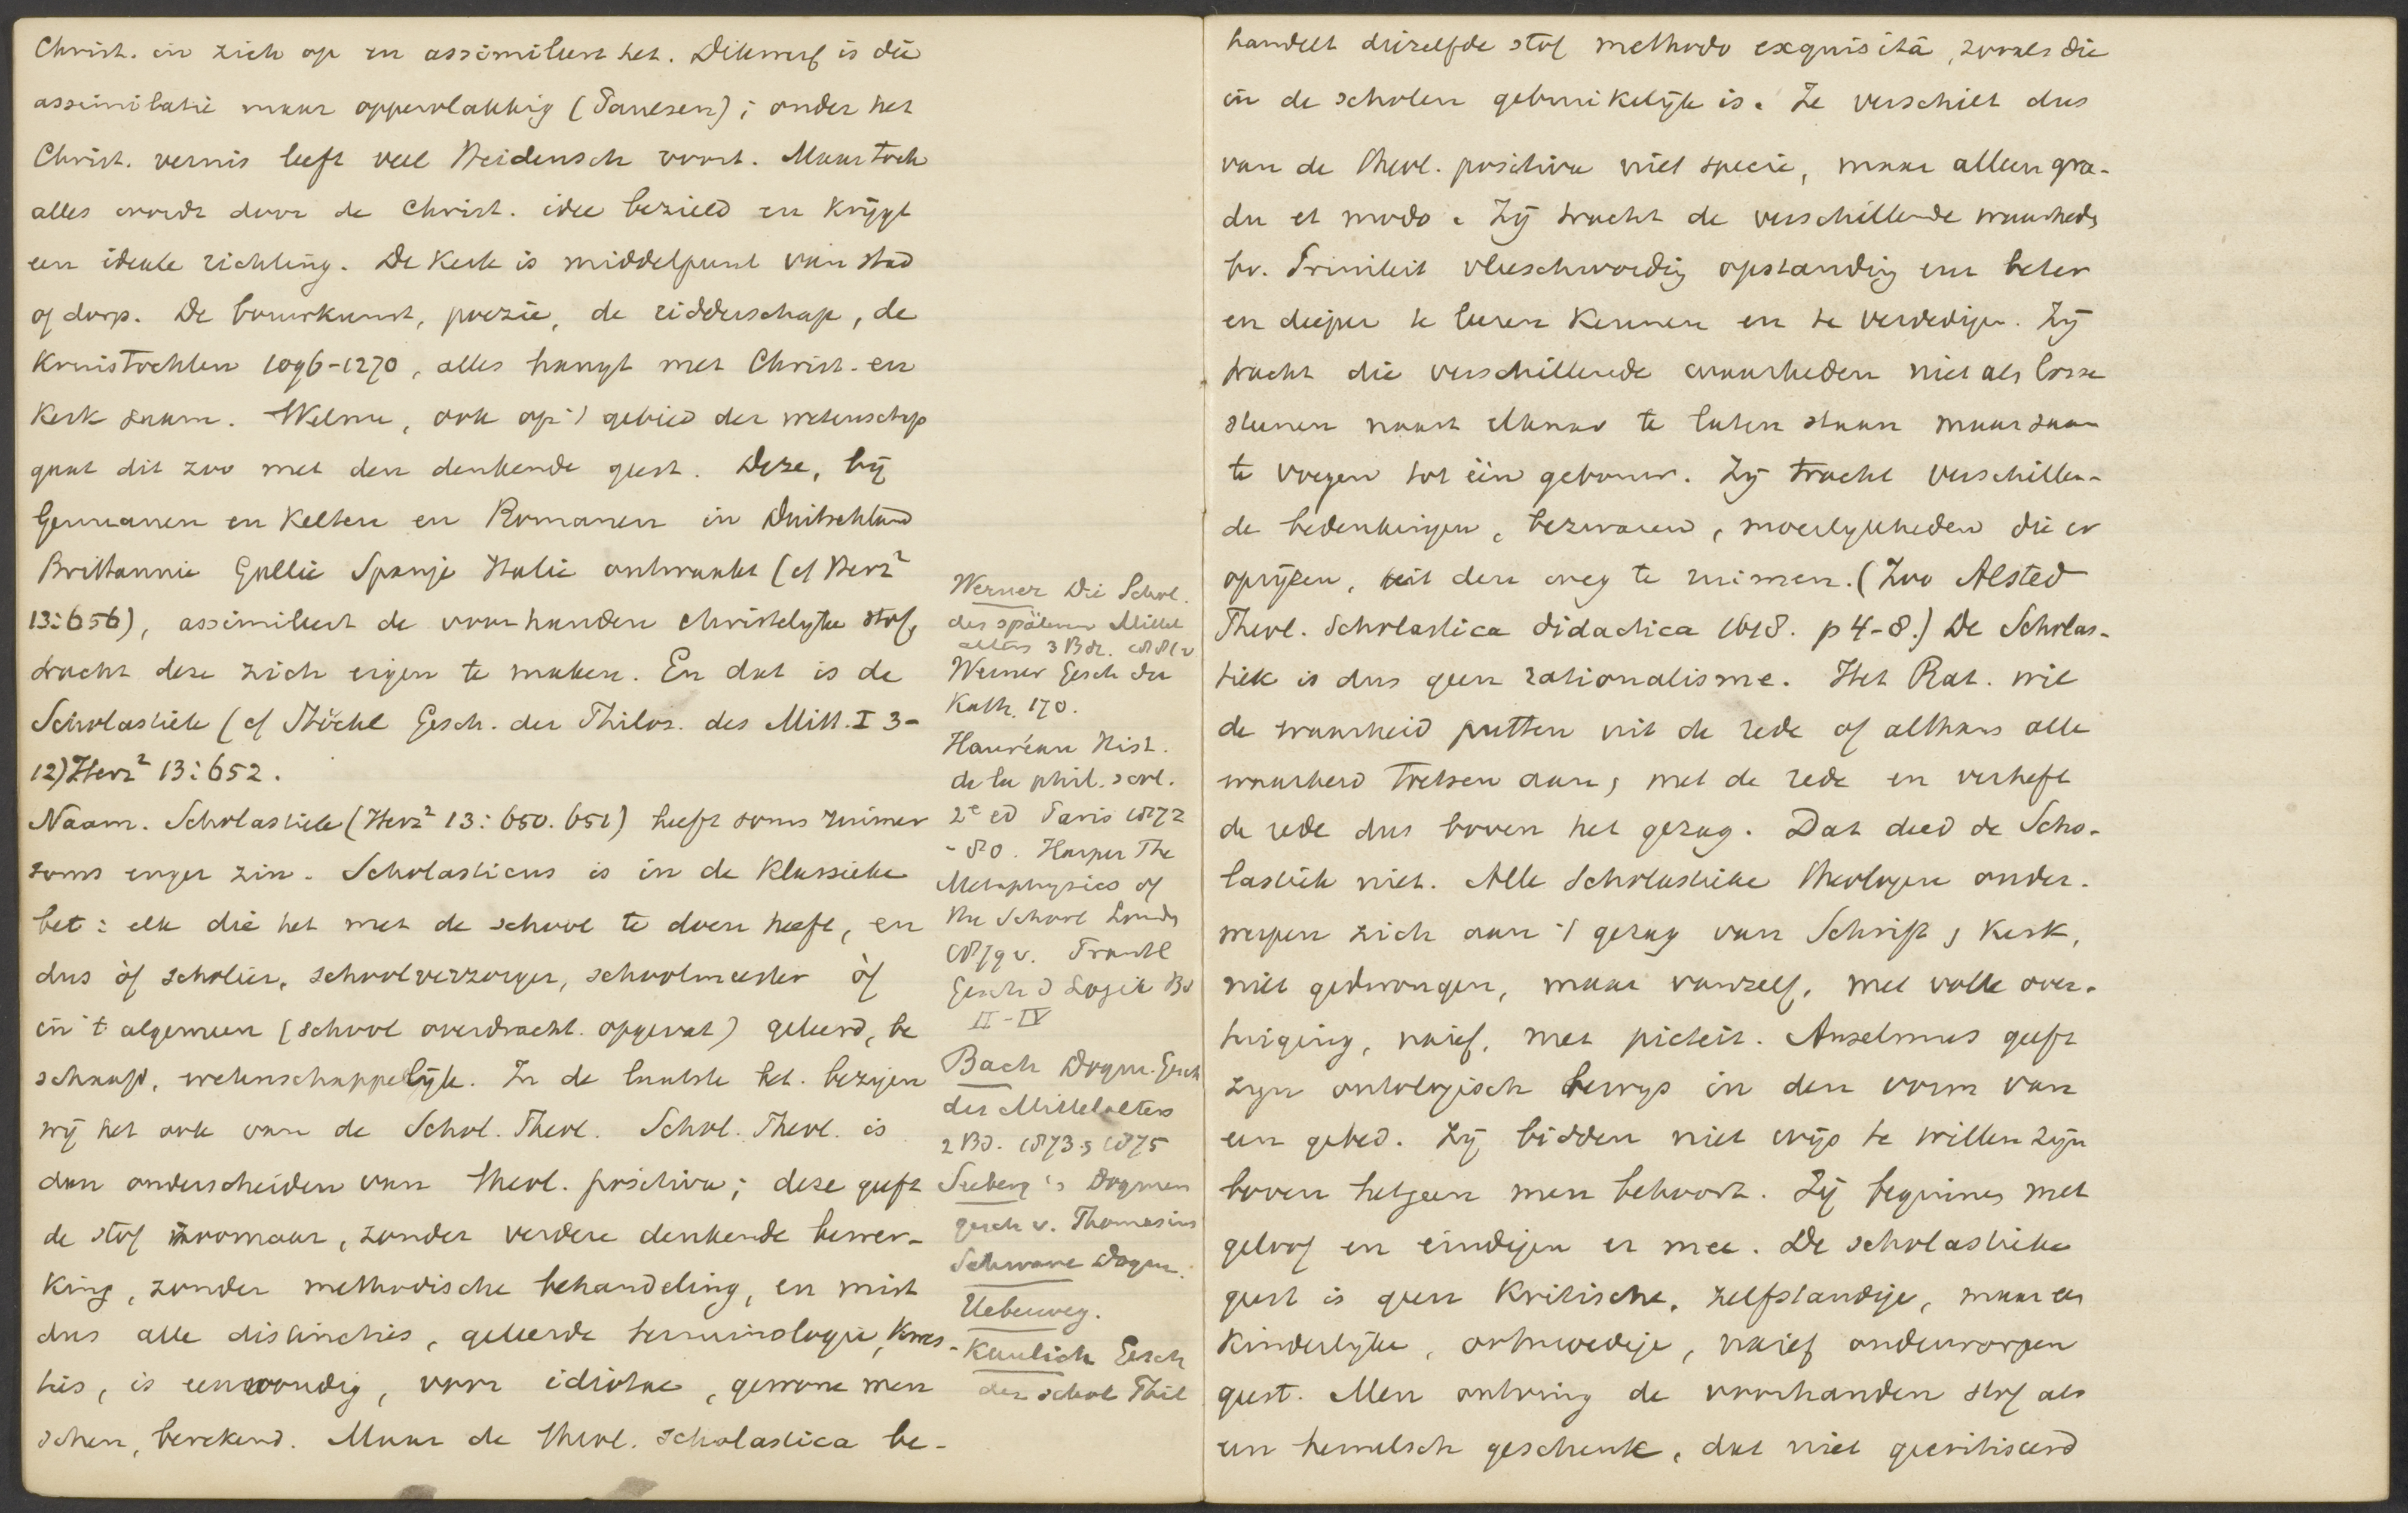 Christ. in zich op en assimileert het. Dikwerf is die
assimilatie maar oppervlakkig (Paulsen); onder het
Christ. vernis leeft veel Heidensch voort. Maar toch
alles wordt door de Christ. idee bezield en krijgt
een ideale richting. De Kerk is middelpunt van stad
of dorp. De bouwkunst, poezie, de ridderschap, de
Kruistochten 1096-1270, alles hangt met Christ. en
Kerk saam. Welnu, ook op 't gebied der wetenschap
gaat dit zoo met den denkende geest. Deze, bij
Germanen en Kelten en Romanen in Duitschland
Brittannie Gallie Spanje Italie ontwaakt (cf Herz²
13:656), assimileert de voorhanden christelijke stof,
tracht deze zich eigen te maken. En dat is de
Scholastiek (cf Stöckl Gesch. der Philos. des Mitt. I 3-
12) Herz² 13:652.
Naam. Scholastiek (Herz² 13:650.651) heeft soms ruimer
soms enger zin. Scholasticus is in de klassieke
bet: elk die het met de school te doen heeft, en
dus òf scholier, schoolverzorger, schoolmeester òf
in 't algemeen (school overdracht. opgevat) geleerd, be
schaafd, wetenschappelijk. In de laatste bet. bezigen
wij het ook van de Schol. Theol. Schol. Theol. is
dan onderscheiden van theol. positiva; deze geeft
de stof zoomaar, zonder verdere denkende bewer-
king, zonder methodische behandeling, en mist
dus alle distincties, geleerde terminologie, kwes-
ties, is eenvoudig, voor idiotae, gewone men
schen, berekend. Maar de theol. scholastica be-
Werner Die Schol.
des späteren Mittel
alters 3 Bde. 1881 v
Werner Gesch der
Kath. 170.
Hauréau Hist.
de la phil. scol.
2e ed Paris 1872
-80. Harper The
Metaphysics of
the School Londen
1879 v. Prantl
Gesch d Logik Bd
II-IV
Bach Dogm. Gesch
des Mittelalters
2 Bd. 1873 & 1875
Seeberg in Dogmen
gesch v. Thomasius
Schwane Dogm.
Ueberweg.
Kaulich Gesch
der schol Phil
handelt diezelfde stof methodo exquisitâ, zooals die
in de scholen gebruikelijk is. Ze verschilt dus
van de theol. positiva niet specie, maar alleen gra-
du et modo. Zij tracht de verschillende waarheden
bv. Triniteit vleeschwording opstanding enz beter
en dieper te leeren kennen en te verdedigen. Zij
tracht die verschillende waarheden niet als losse
steenen naast elkaar te laten staan maar saam
te voegen tot één gebouw. Zij tracht verschillen-
de bedenkingen, bezwaren, moeilijkheden die er
oprijzen, uit den weg te ruimen. (Zoo Alsted
Theol. Scholastica didactica 1618. p 4-8.) De Scholas-
tiek is dus geen rationalisme. Het Rat. wil
de waarheid putten uit de rede of althans alle
waarheid toetsen aan, met de rede en verheft
de rede dus boven het gezag. Dat deed de Scho-
lastiek niet. Alle Scholastieke theologen onder-
werpen zich aan 't gezag van Schrift & Kerk,
niet gedwongen, maar vanzelf, met volle over-
tuiging, naief, met pieteit. Anselmus geeft
zijn ontologisch bewijs in den vorm van
een gebed. Zij bidden niet wijs te willen zijn
boven hetgeen men behoort. Zij beginnen met
geloof en eindigen er mee. De scholastieke
geest is geen kritische, zelfstandige, maar een
kinderlijke, ootmoedige, naief onderworpen
geest. Men ontving de voorhanden stof als
een hemelsch geschenk, dat niet gecritiseerd